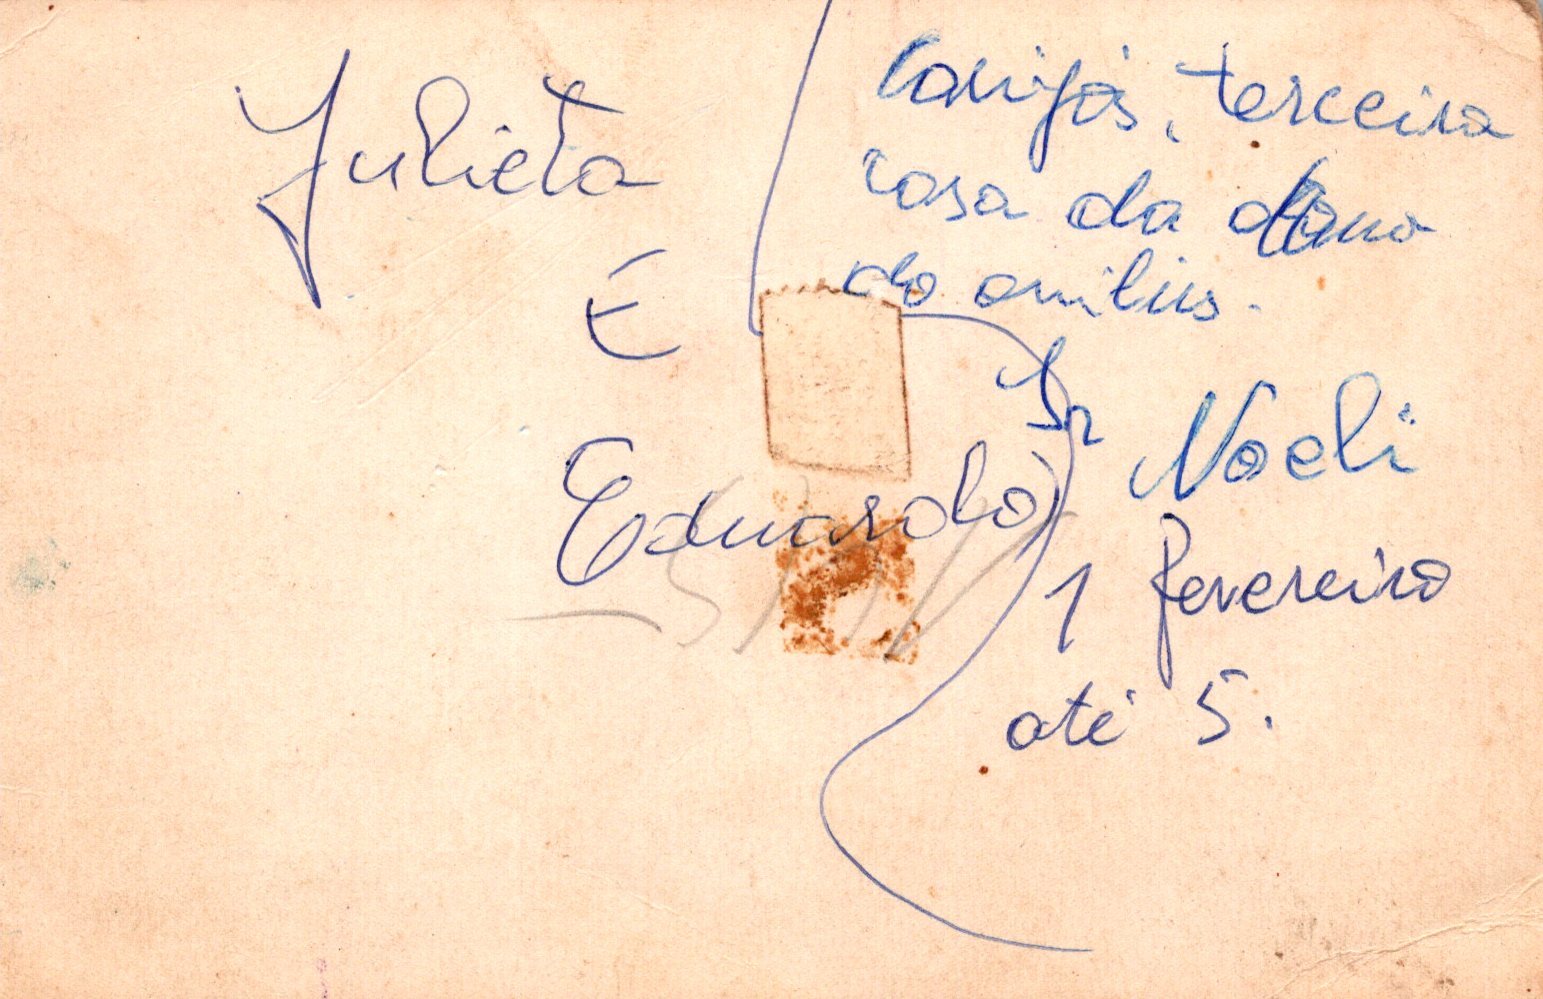 Julieta
E
Eduardo
terceira
casa da
do onibus.
Sr Noeli
1 fevereiro
até 5.